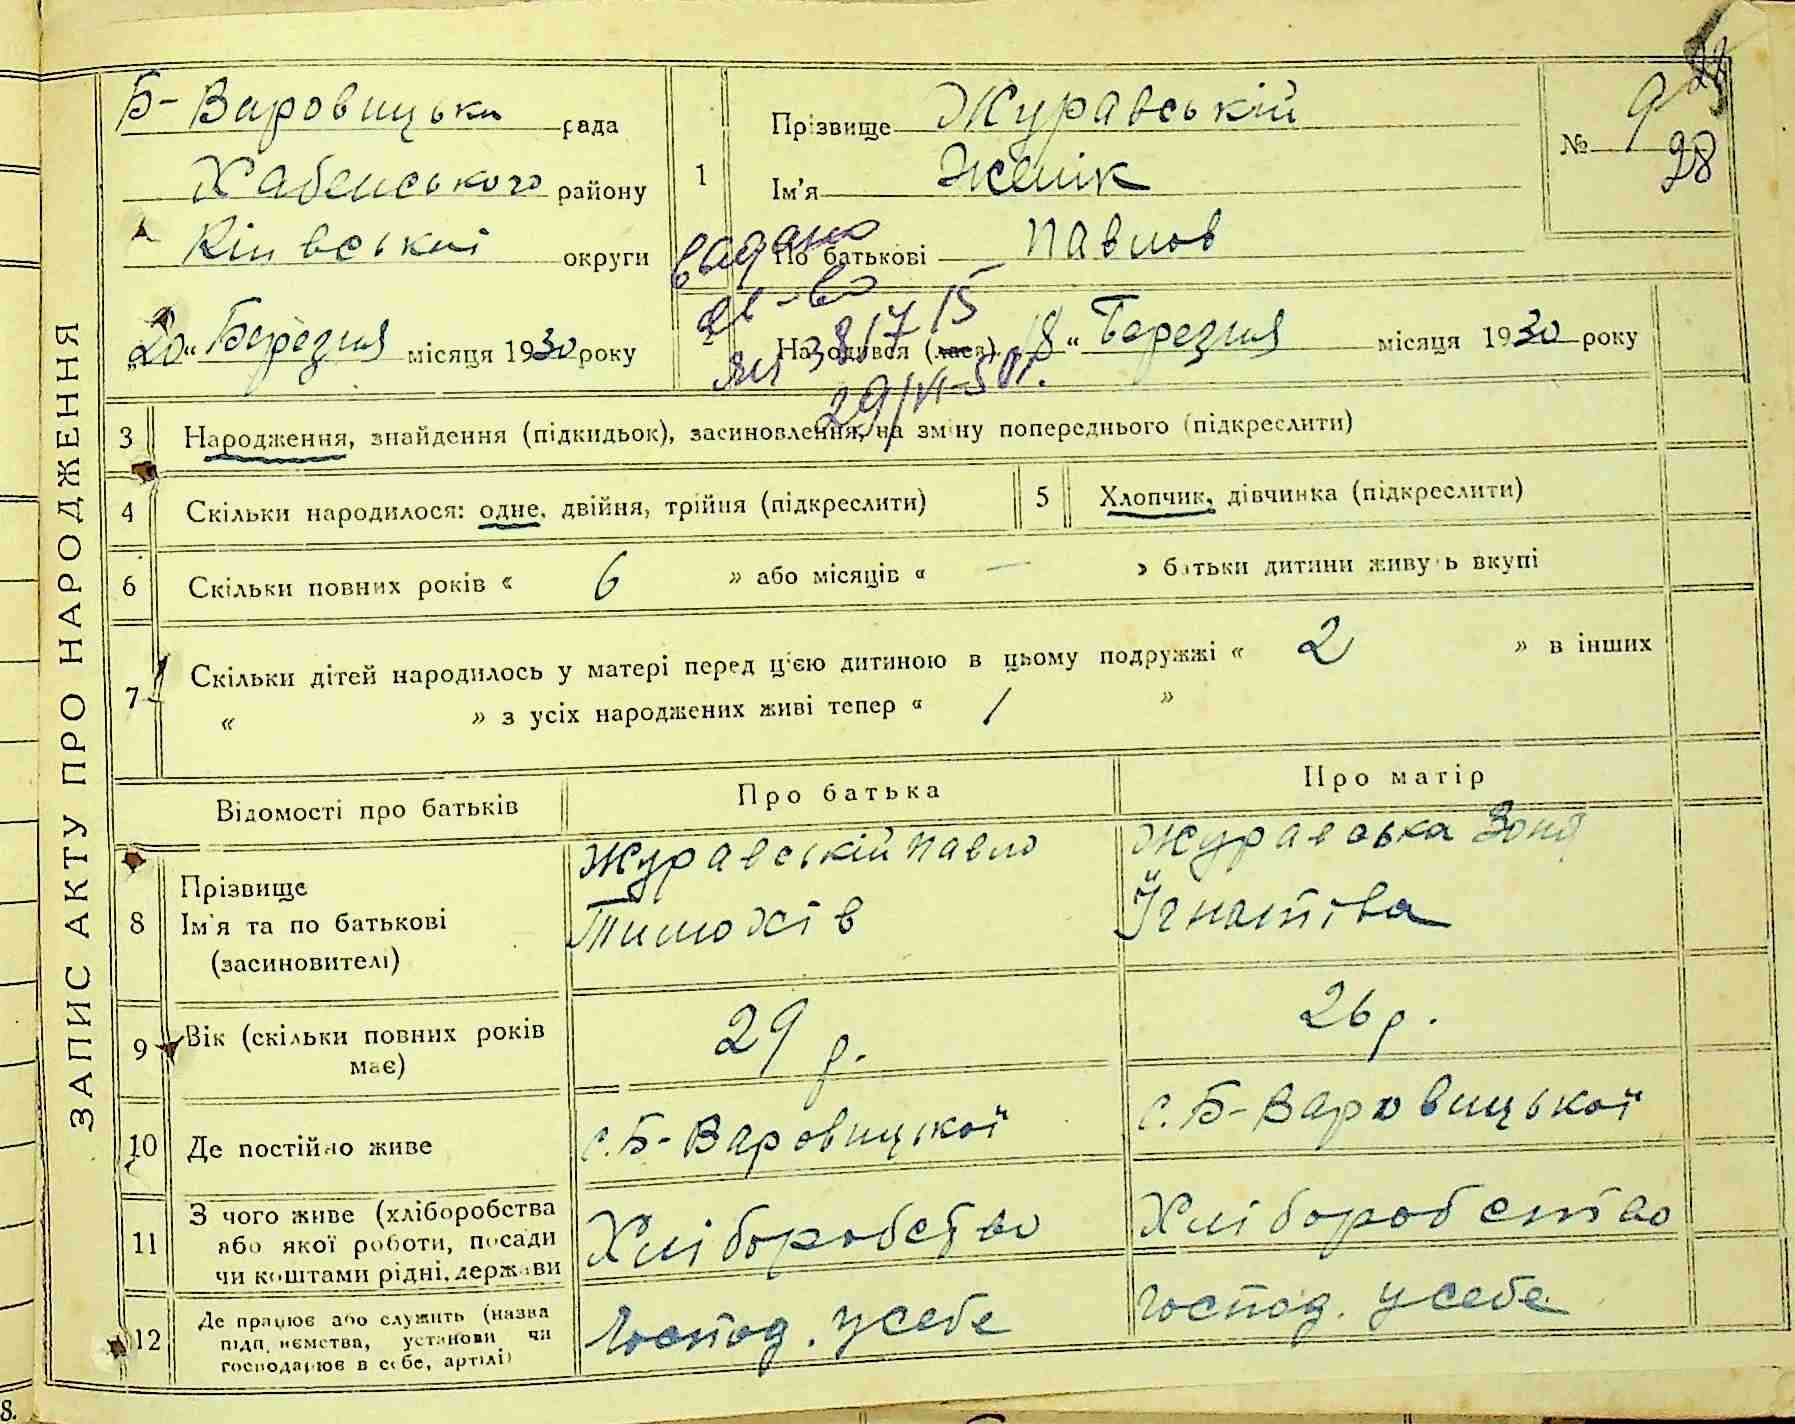 ЗАПИС АКТУ ПРО НАРОДЖЕННЯ
Б-Варовицька рада
Хабенського району
Київської округи
„20“ Березня місяця 1930 року
1
Прізвище Журавській
Ім'я Женік
По батькові Павлов
№ 9
28
видано
св-во
2 Народився (лася) 18 “ Березня місяця 1930 року
29/VI-50г.
3 Народження, знайдення (підкидьок), засиновлення, на зміну попереднього (підкреслити)
4 Скільки народилося: одне, двійня, трійня (підкреслити)
5 Хлопчик, дівчинка (підкреслити)
6 Скільки повних років « 6 » або місяців « — » батьки дитини живуть вкупі
7 Скільки дітей народилось у матері перед ц'єю дитиною в цьому подружжі « 2 » в інших
« » з усіх народжених живі тепер « 1 »
Відомості про батьків
Про батька
Про матір
8 Прізвище
Ім'я та по батькові
(засиновителі)
Журавській Павло
Тимохів
Журавська Зоня
Їгнатіва
9 Вік (скільки повних років
має)
29 р.
26 р.
10 Де постійно живе
с. Б-Варовицької
с. Б-Варовицької
11 З чого живе (хліборобства
або якої роботи, посади
чи коштами рідні, держави
Хліборобство
Хліборобство
12 Де працює або служить (назва
підприємства, установи чи
господарює в себе, артілі)
Господ. у себе
Господ. у себе
8.